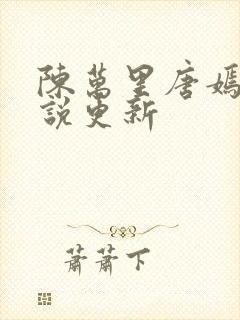 陳萬里唐嫣
說更新
蕭蕭下